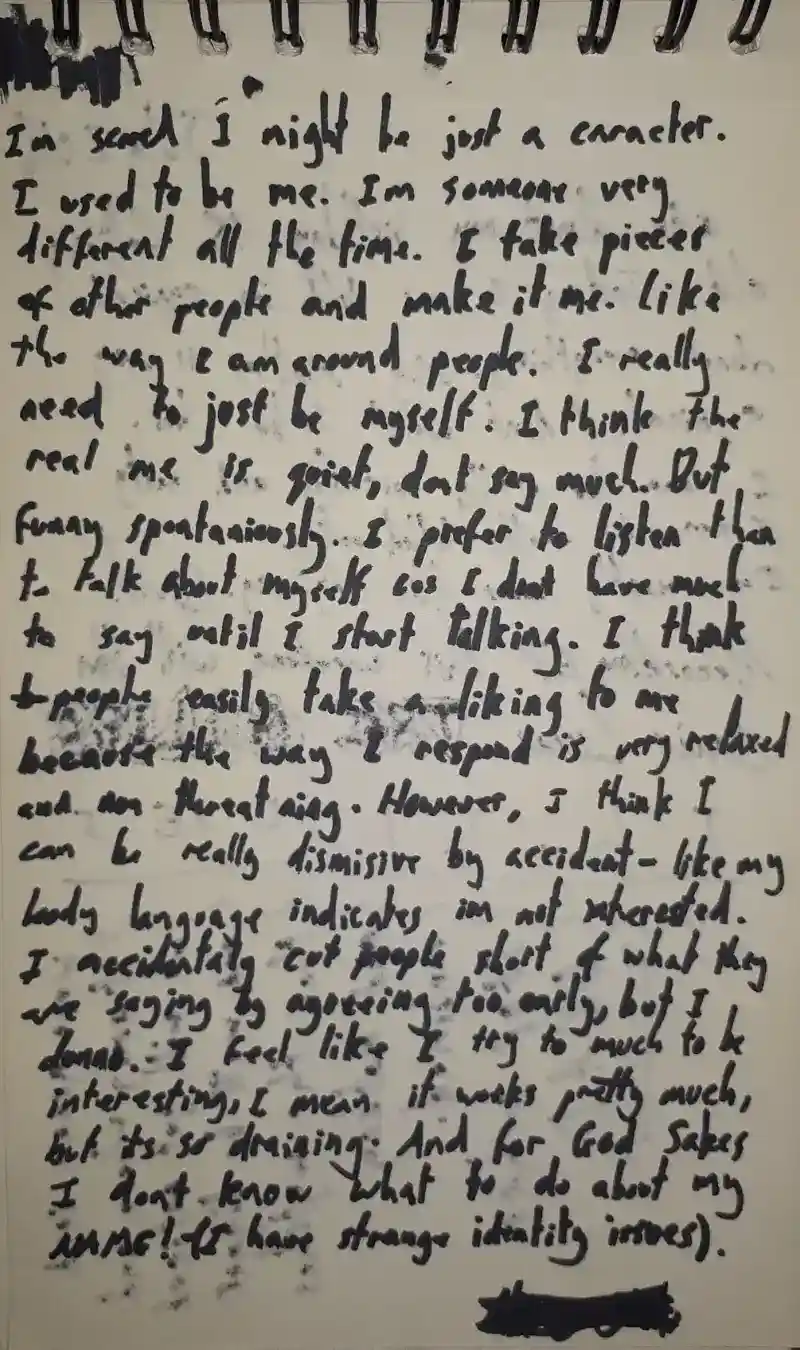 Im scared I might be just a caracter.
I used to be me. Im someone very
different all the time. I take pieces
of other people and make it me. like
the way I am around people. I really
need to just be myself. I think the
real me is quiet, dont say much. But
funny spontaniously. I prefer to listen then
to talk about myself cos I dont have much
to say until I start talking. I think
people easily take a liking to me
because the way I respond is very relaxed
and non threatning. However, I think I
can be really dismisive by accident - like my
body language indicates im not interested.
I accidentaly cut people short of what they
are saying by agreeing too early, but I
dunno. I feel like I try to much to be
interesting, I mean it works pretty much,
but its so draining. And for God Sakes
I dont know what to do about my
NAME! (I have strange identity issues).